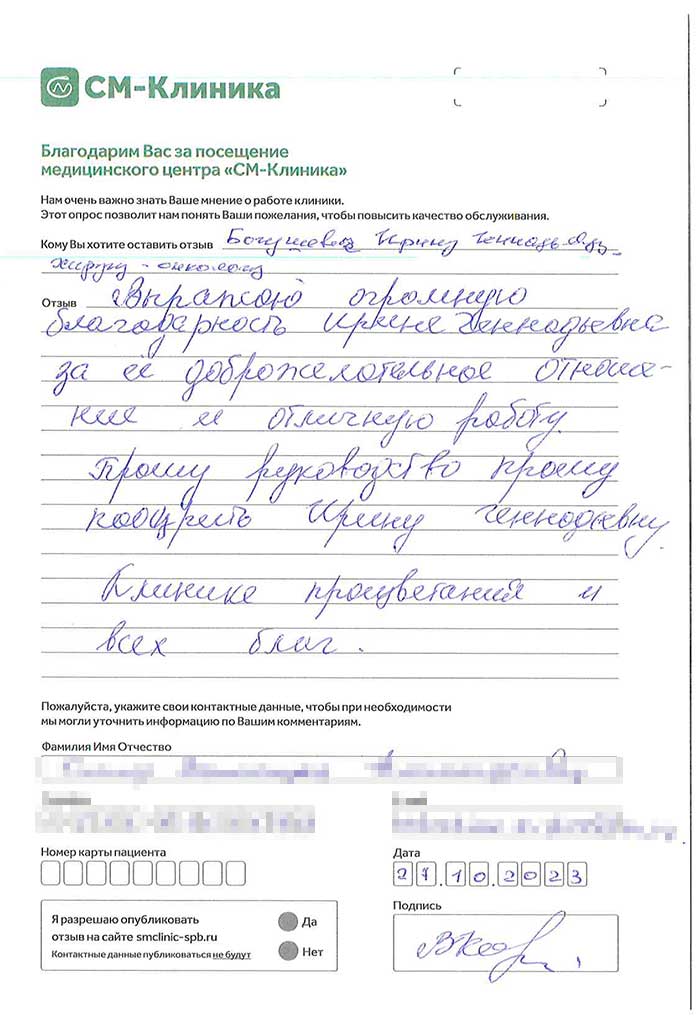 СМ-Клиника
Благодарим Вас за посещение
медицинского центра «СМ-Клиника»
Нам очень важно знать Ваше мнение о работе клиники.
Этот опрос позволит нам понять Ваши пожелания, чтобы повысить качество обслуживания.
Кому Вы хотите оставить отзыв Ирину
хирургу - онкологу
Отзыв Выражаю огромную
благодарность Ирине Геннадьевна
за её доброжелательное отноше-
ние и отличную работу.
Прошу руководство прошу
поощрить Ирину Геннадьевну.
Клинике процветания и
всех благ.
Пожалуйста, укажите свои контактные данные, чтобы при необходимости
мы могли уточнить информацию по Вашим комментариям.
Фамилия Имя Отчество
Номер карты пациента Дата
27.10.2023
Подпись
Я разрешаю опубликовать Да
отзыв на сайте smclinic-spb.ru
Контактные данные публиковаться не будут Нет